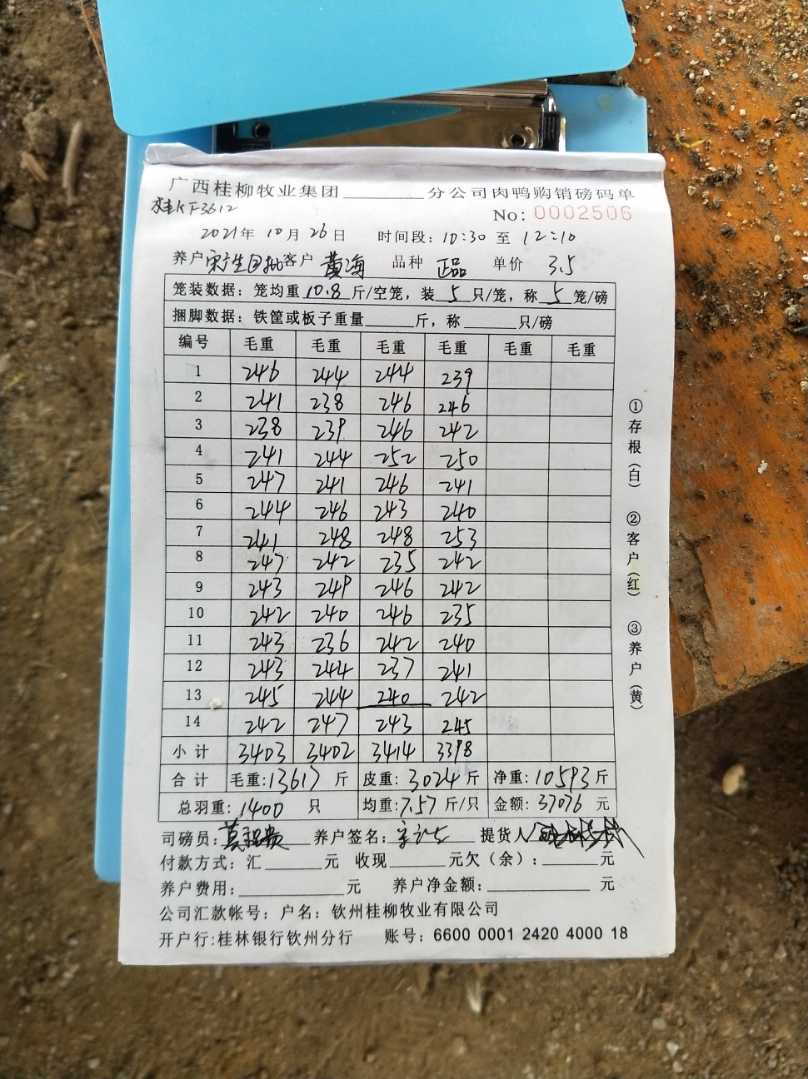 广西桂柳牧业集团________分公司肉鸭购销磅码单
桂KF3612 No: 0002506
2021年 10月 26日 时间段: 10:30 至 12:10
养户 客户 黄海 品种 正品 单价 3.5
笼装数据: 笼均重 10.8 斤/空笼, 装 5 只/笼, 称 5 笼/磅
捆脚数据: 铁筐或板子重量______斤, 称______只/磅
编号 毛重 毛重 毛重 毛重 毛重 毛重
1 246 244 244 239
2 241 238 246 246
3 238 239 246 242
4 241 244 252 250
5 247 241 246 241
6 244 246 243 240
7 241 248 248 253
8 247 242 235 242
9 243 249 246 242
10 242 240 246 235
11 243 236 242 240
12 243 244 237 241
13 245 244 240 242
14 242 247 243 245
小计 3403 3402 3414 3398
合计 毛重: 13617 斤 皮重: 3024 斤 净重: 10593 斤
总羽重: 1400 只 均重: 7.57 斤/只 金额: 37076 元
司磅员: 养户签名: 提货人
付款方式: 汇______元 收现______元欠(余): ______元
养户费用: ________元 养户净金额: ________元
公司汇款帐号: 户名: 钦州桂柳牧业有限公司
开户行: 桂林银行钦州分行 账号: 6600 0001 2420 4000 18
①存根(白) ②客户(红) ③养户(黄)